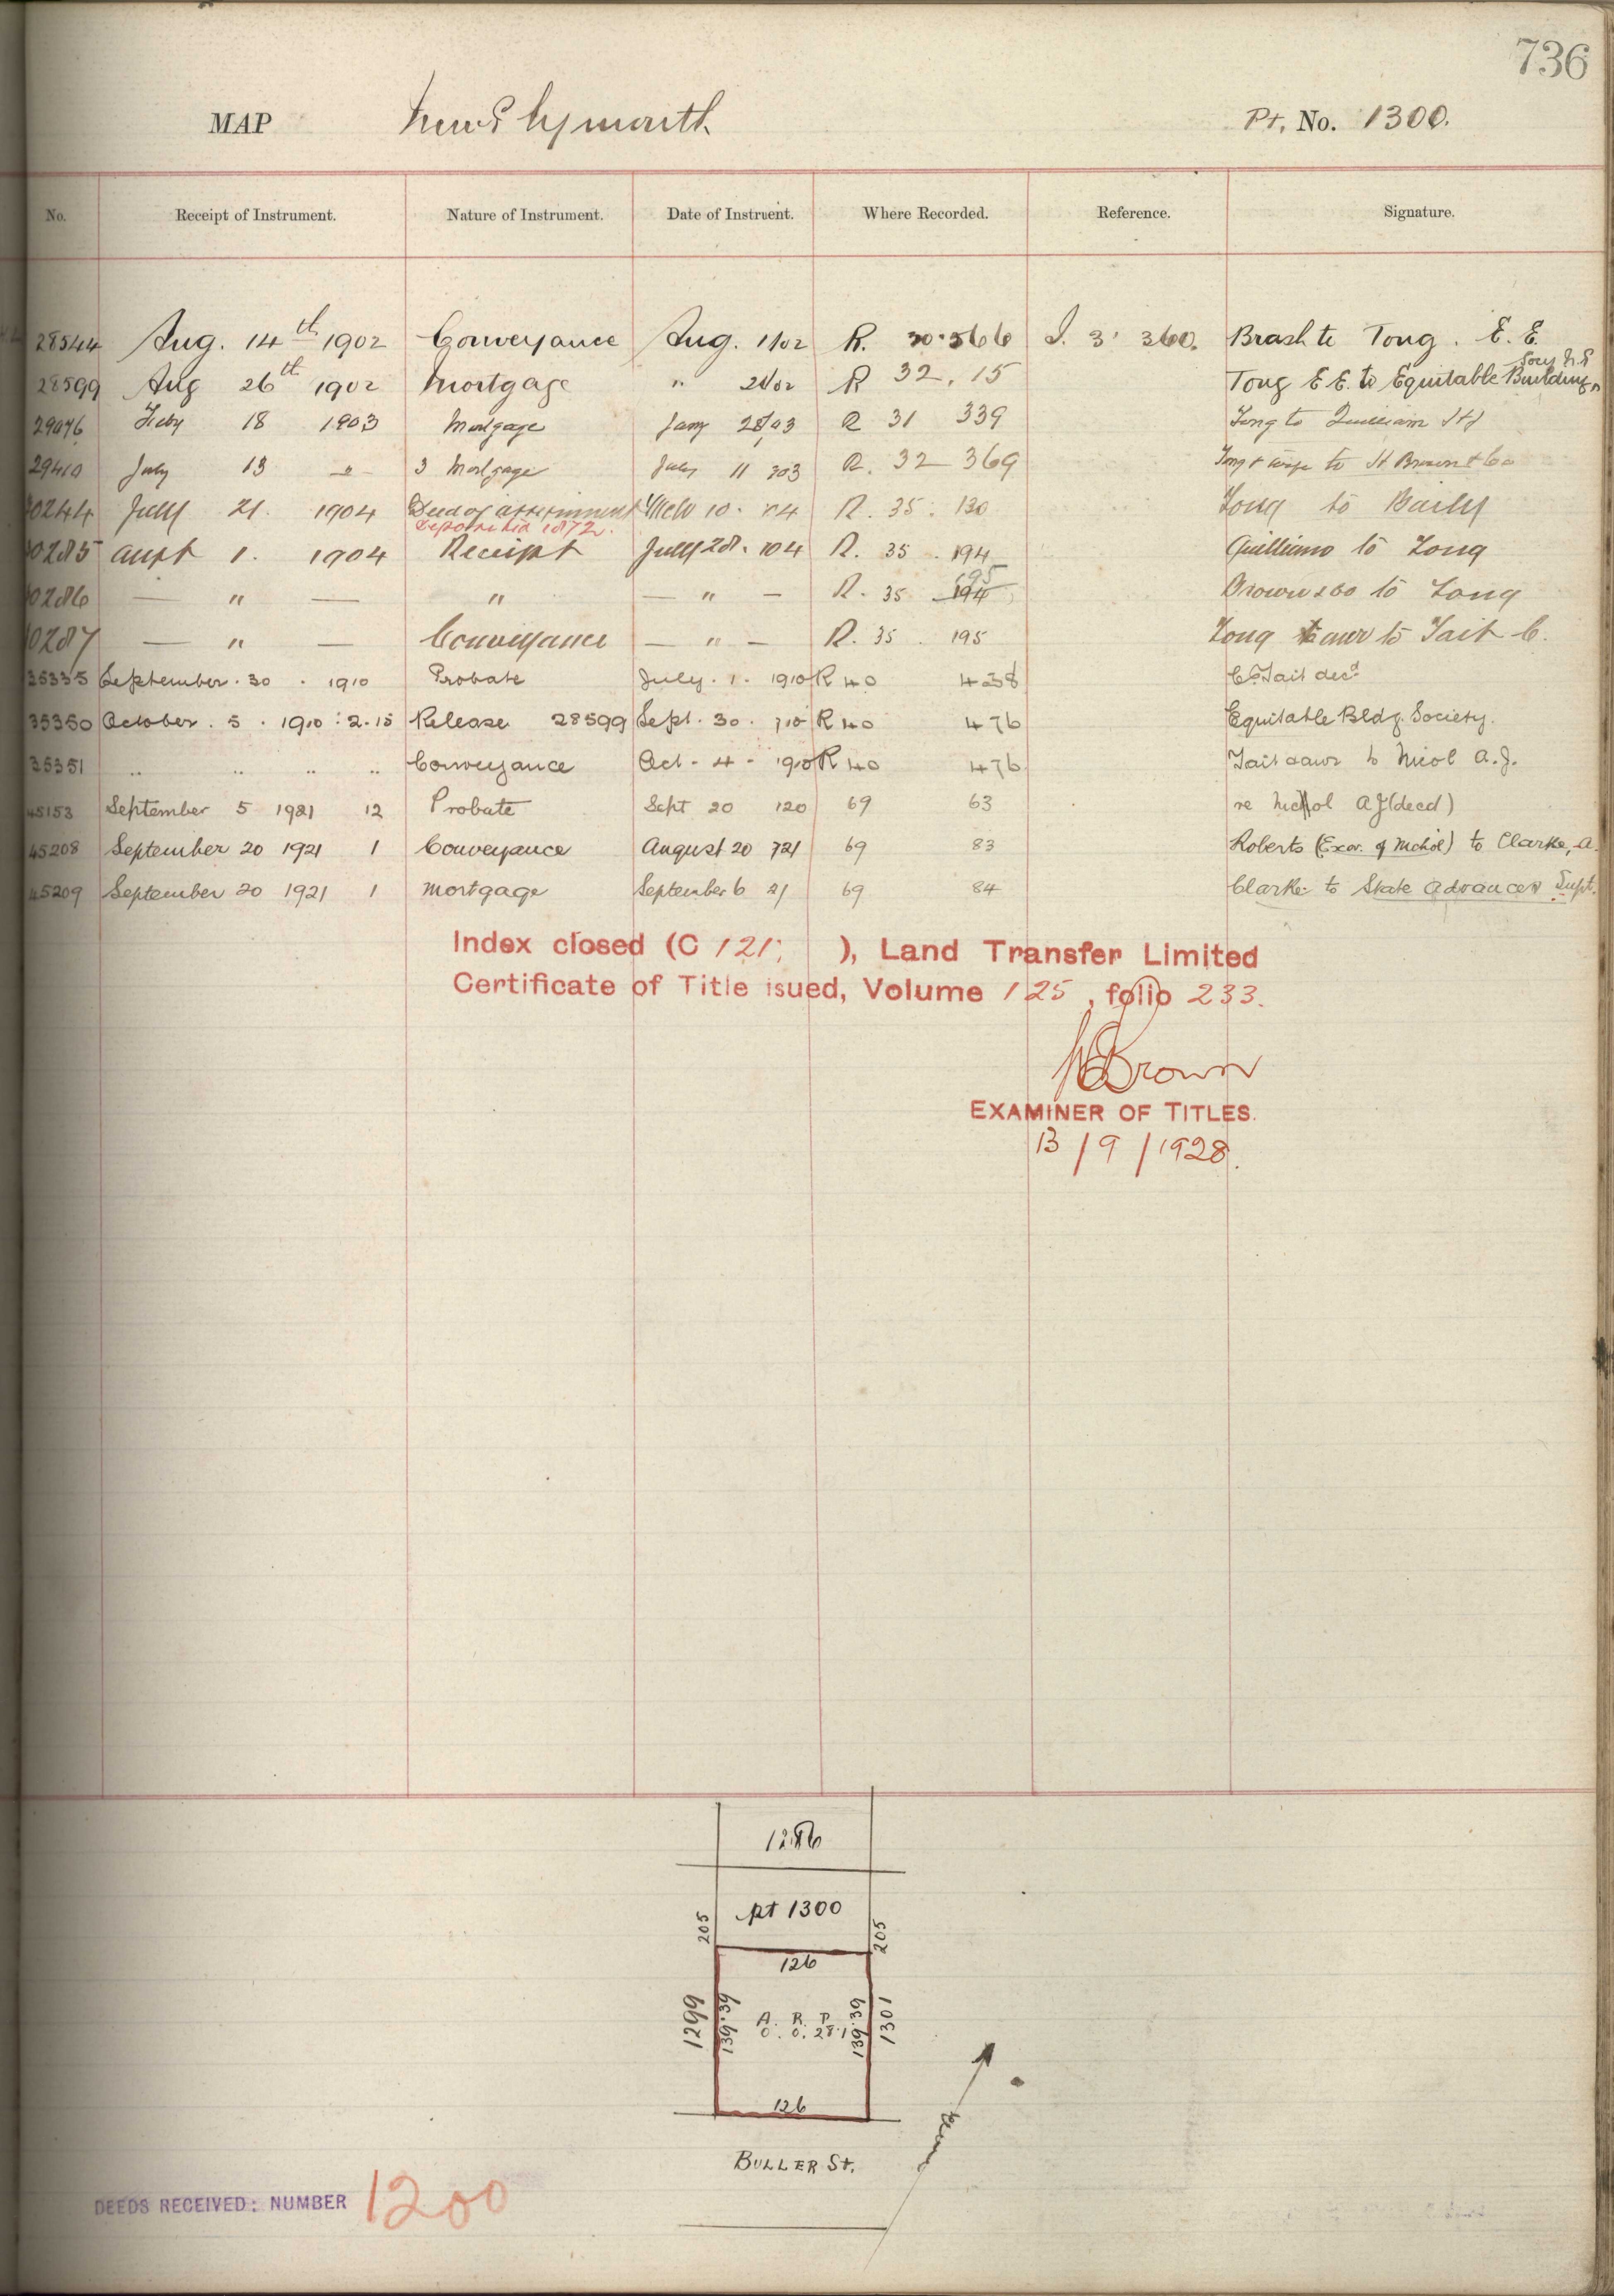 736
MAP New Plymouth Pt. No. 1300.
No. Receipt of Instrument. Nature of Instrument. Date of Instruent. Where Recorded. Reference. Signature.
28544 Aug. 14th 1902 Conveyance Aug. 1/02 R. 30.566 I. 3. 360. Brash to Tong. E. E.
28599 Aug 26th 1902 Mortgage " 21/02 R 32. 15 Tong E E. to Equitable Building Socy N.P
29076 Feby 18 1903 Mortgage Jany 28/03 R 31 339 Tong to Quilliam
29410 July 13 " 3 Mortgage July 11 303 R. 32 369 Tong & wife to H Brown & Co
30244 July 21. 1904 Deed of assignment Mch 10. 04 R. 35. 130 Tong to Baily
deposited 1872.
30285 Augt 1. 1904 Receipt July 28. 104 R. 35. 194 Quilliam to Tong
30286 — " — " — " — R. 35 194 195 Brown & Co to Tong
30287 — " — Conveyance — " — R. 35. 195 Tong & anr to Tait C.
35335 September. 30. 1910 Probate July. 1. 1910 R 40 438 C. Tait decd
35350 October. 5. 1910: 2.15 Release 28599 Sept. 30. 910 R 40 476 Equitable Bldg. Society.
35351 .. .. .. .. Conveyance Oct. 4. 1910 R 40 476 Tait & anr to Nicol A.J.
45153 September 5 1921 12 Probate Sept 20 120 69 63 re Nichol A J (decd)
45208 September 20 1921 1 Conveyance August 20 721 69 83 Roberts (Exor. of Nichol) to Clarke, A.
45209 September 20 1921 1 Mortgage September 6 21 69 84 Clarke to State Advances Supt.
Index closed (C 121; ), Land Transfer Limited
Certificate of Title isued, Volume 125, folio 233.
Brown
EXAMINER OF TITLES.
13/9/1928.
1286
pt 1300
205 205
126
1299 139.39 A. R. P. 139.39 1301
0. 0. 28.1
126
BULLER St.
DEEDS RECEIVED: NUMBER 1200